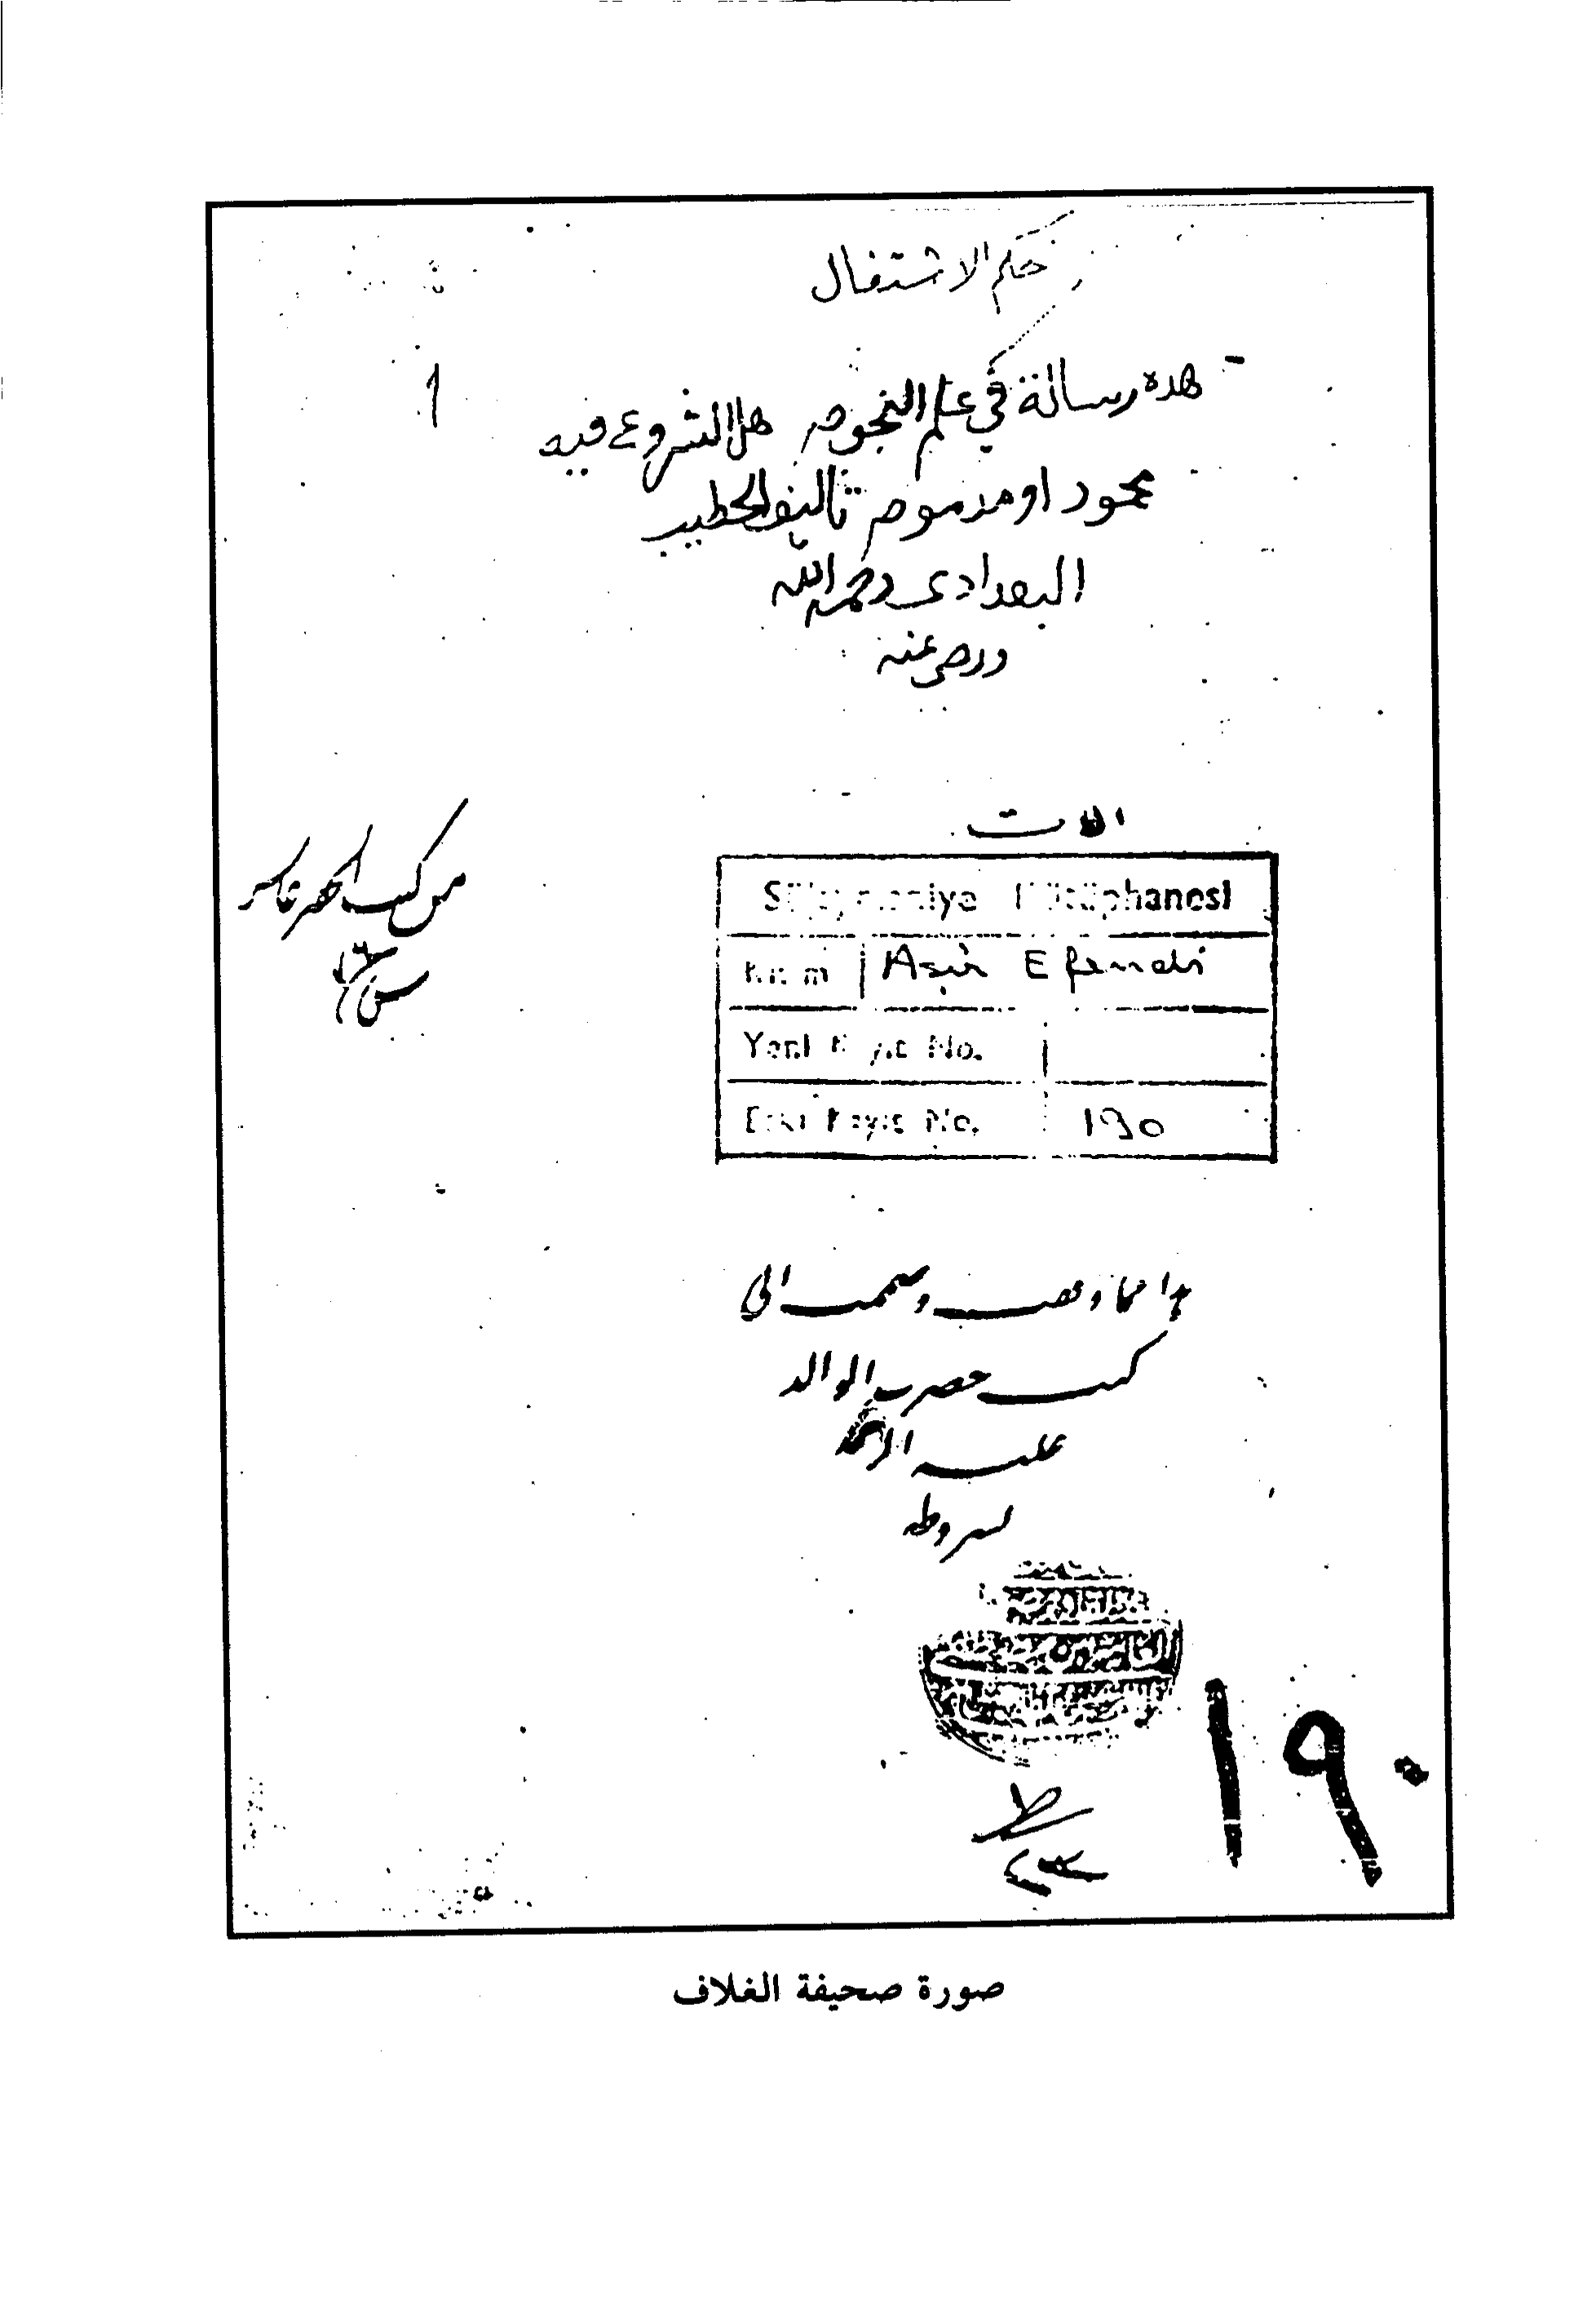 حكم الاشتغال
هذه رسالة في علم النجوم هل الشروع فيه
محمود او مذموم تاليف الخطيب
البغدادي رحمه الله
ورضي عنه
١
من كتب
Süleymaniye Kütüphanesi
Kısmı Aşir Efendi
Yeni Kayıt No.
Eski Kayıt No. 190
هذا مما وقفت وضممت الى
كتب حضرت الوالد
عليه الرحمة
بشروطه
١٩٠
صورة صحيفة الغلاف